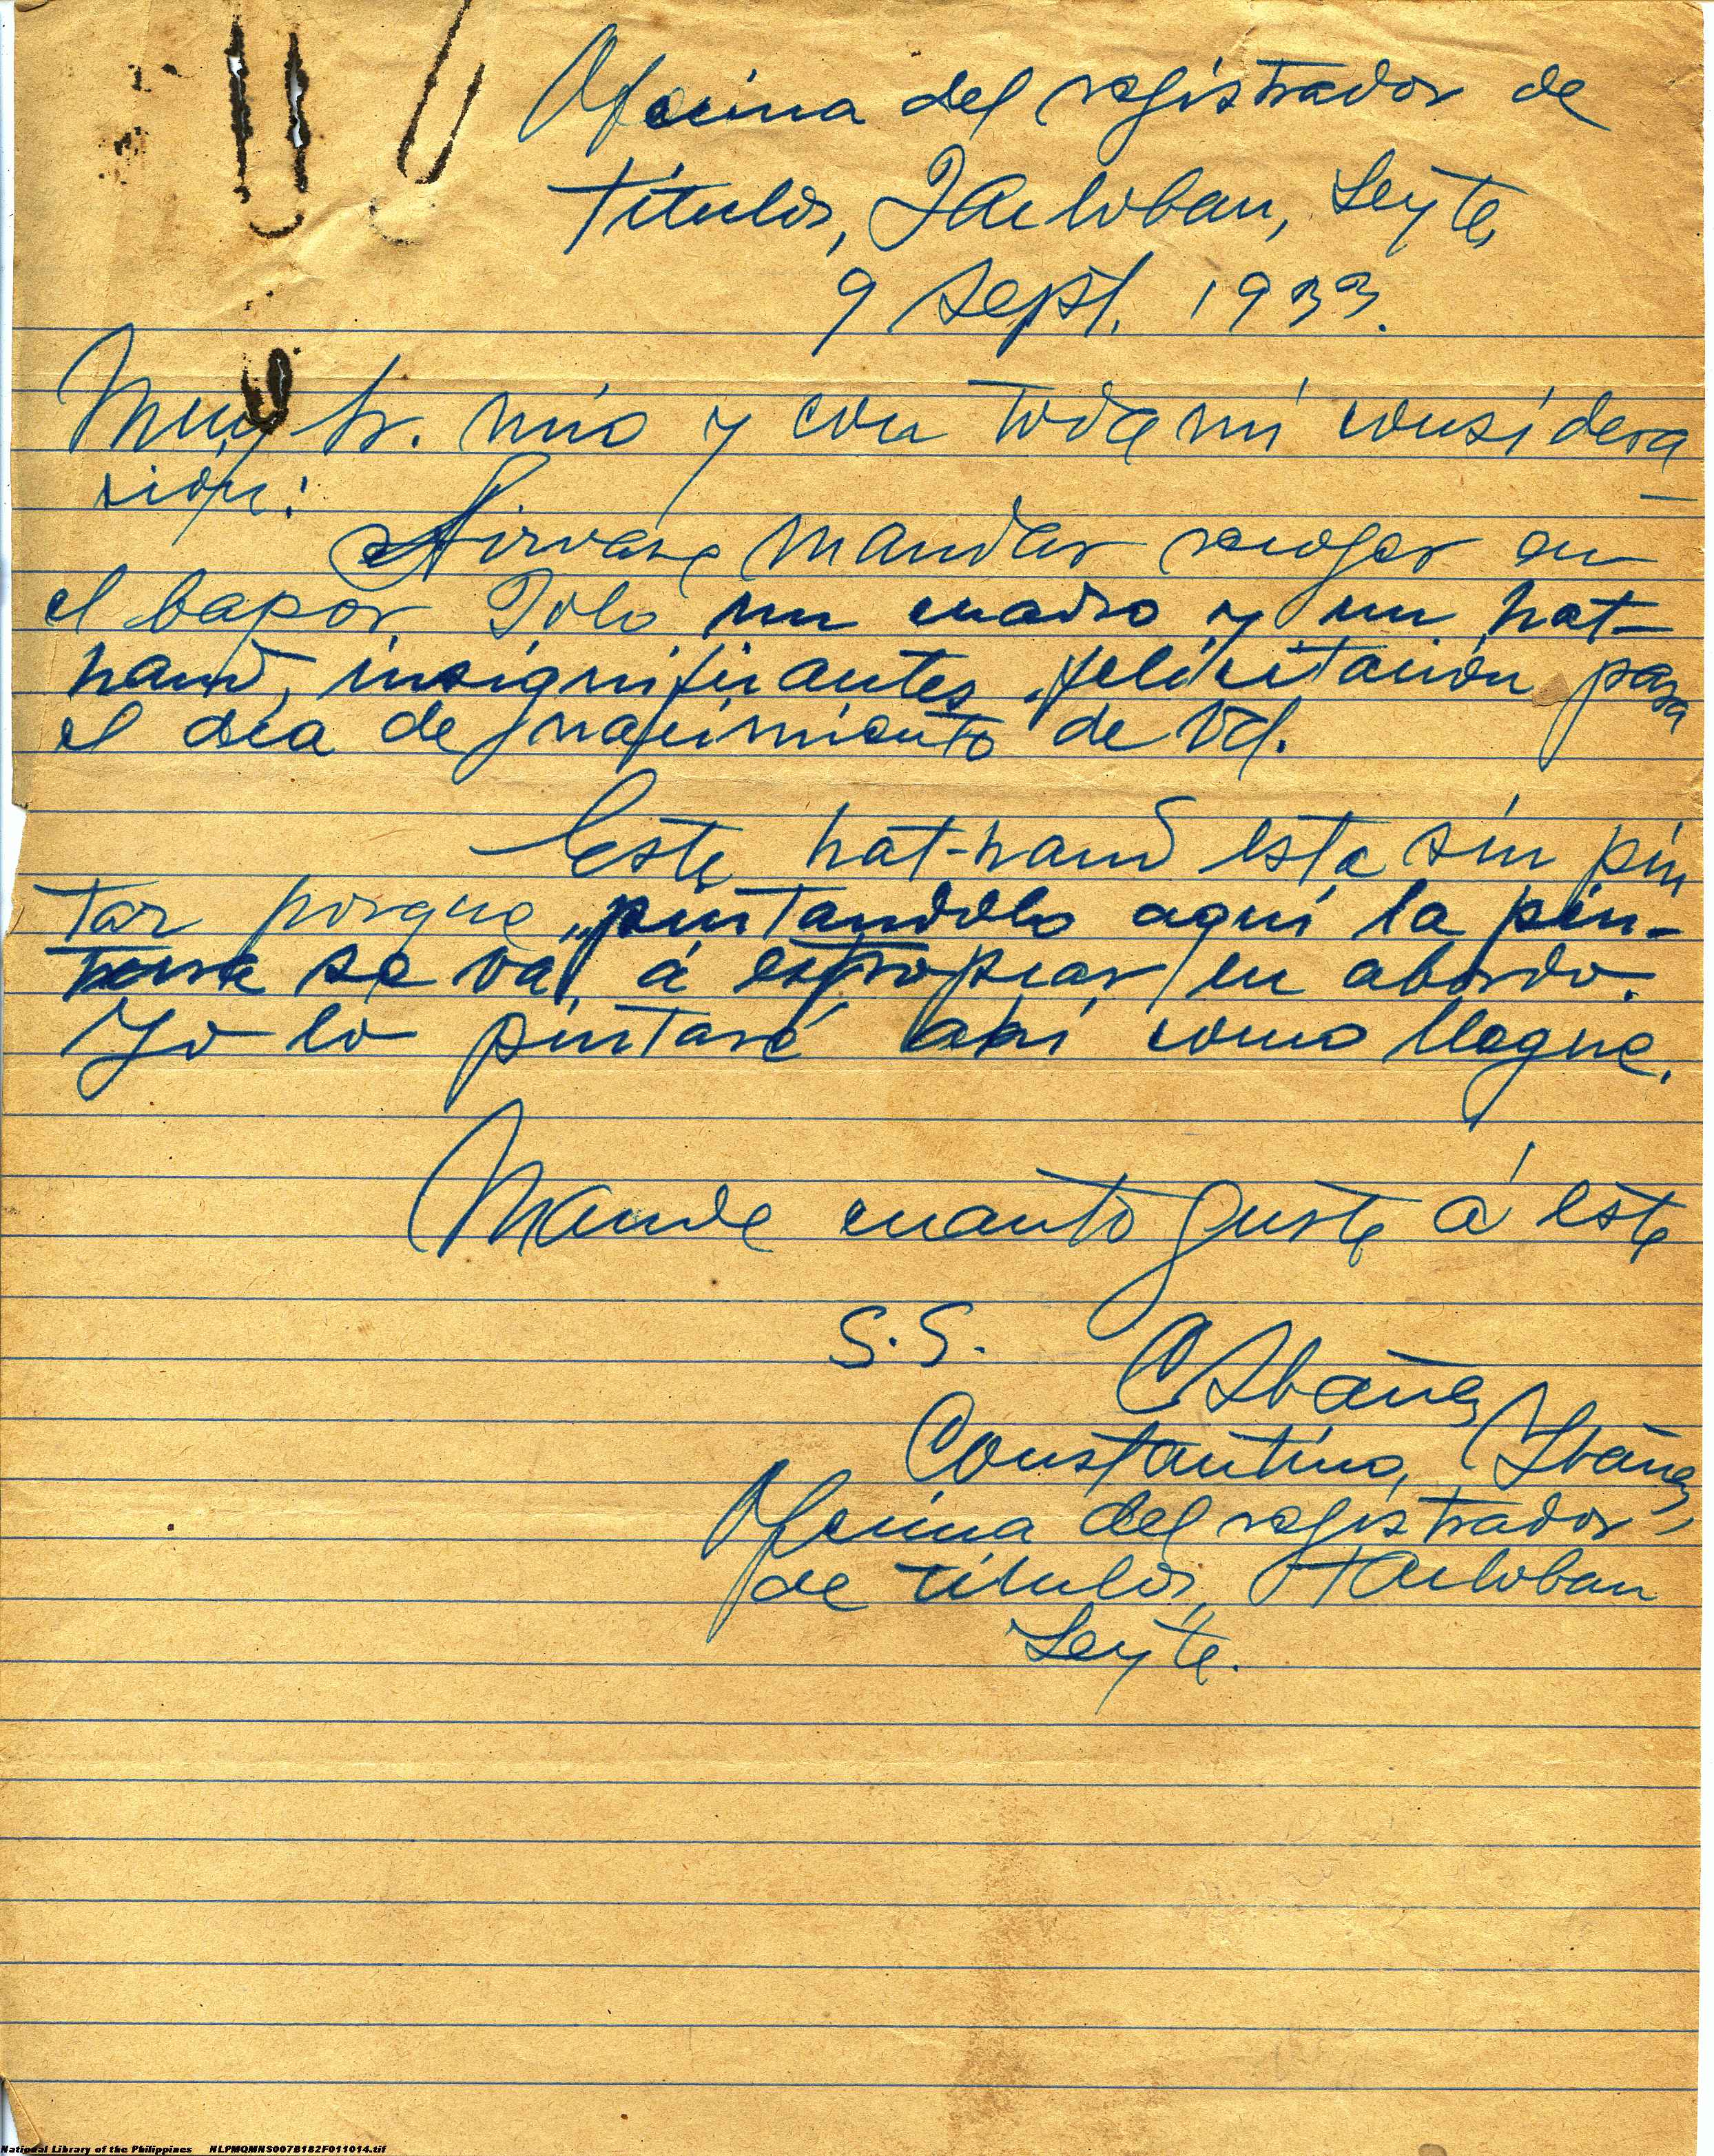 Oficina del registrador de
títulos, Tacloban, Leyte,
9 Sept. 1933.
Muy Sr. mío y con toda mi considera
-
cion:
Sirvase mandar recoger en
el bapor Jolo un cuadro y un hat-
hand, insignificantes felicitación para
el día de nacimiento de Vd.
Este hat-hand esta sin pin
tar porque pintandolo aquí la pin-
tura se va á estropear en abordo.
Yo lo pintaré ahí como llegue.
Mande cuanto guste á este
S.S. CIbáñez
Constantino Ibáñez
Oficina del registrador
de títulos, Tacloban
Leyte.
National Library of the Philippines NLPMQMNS007B182F011014.tif